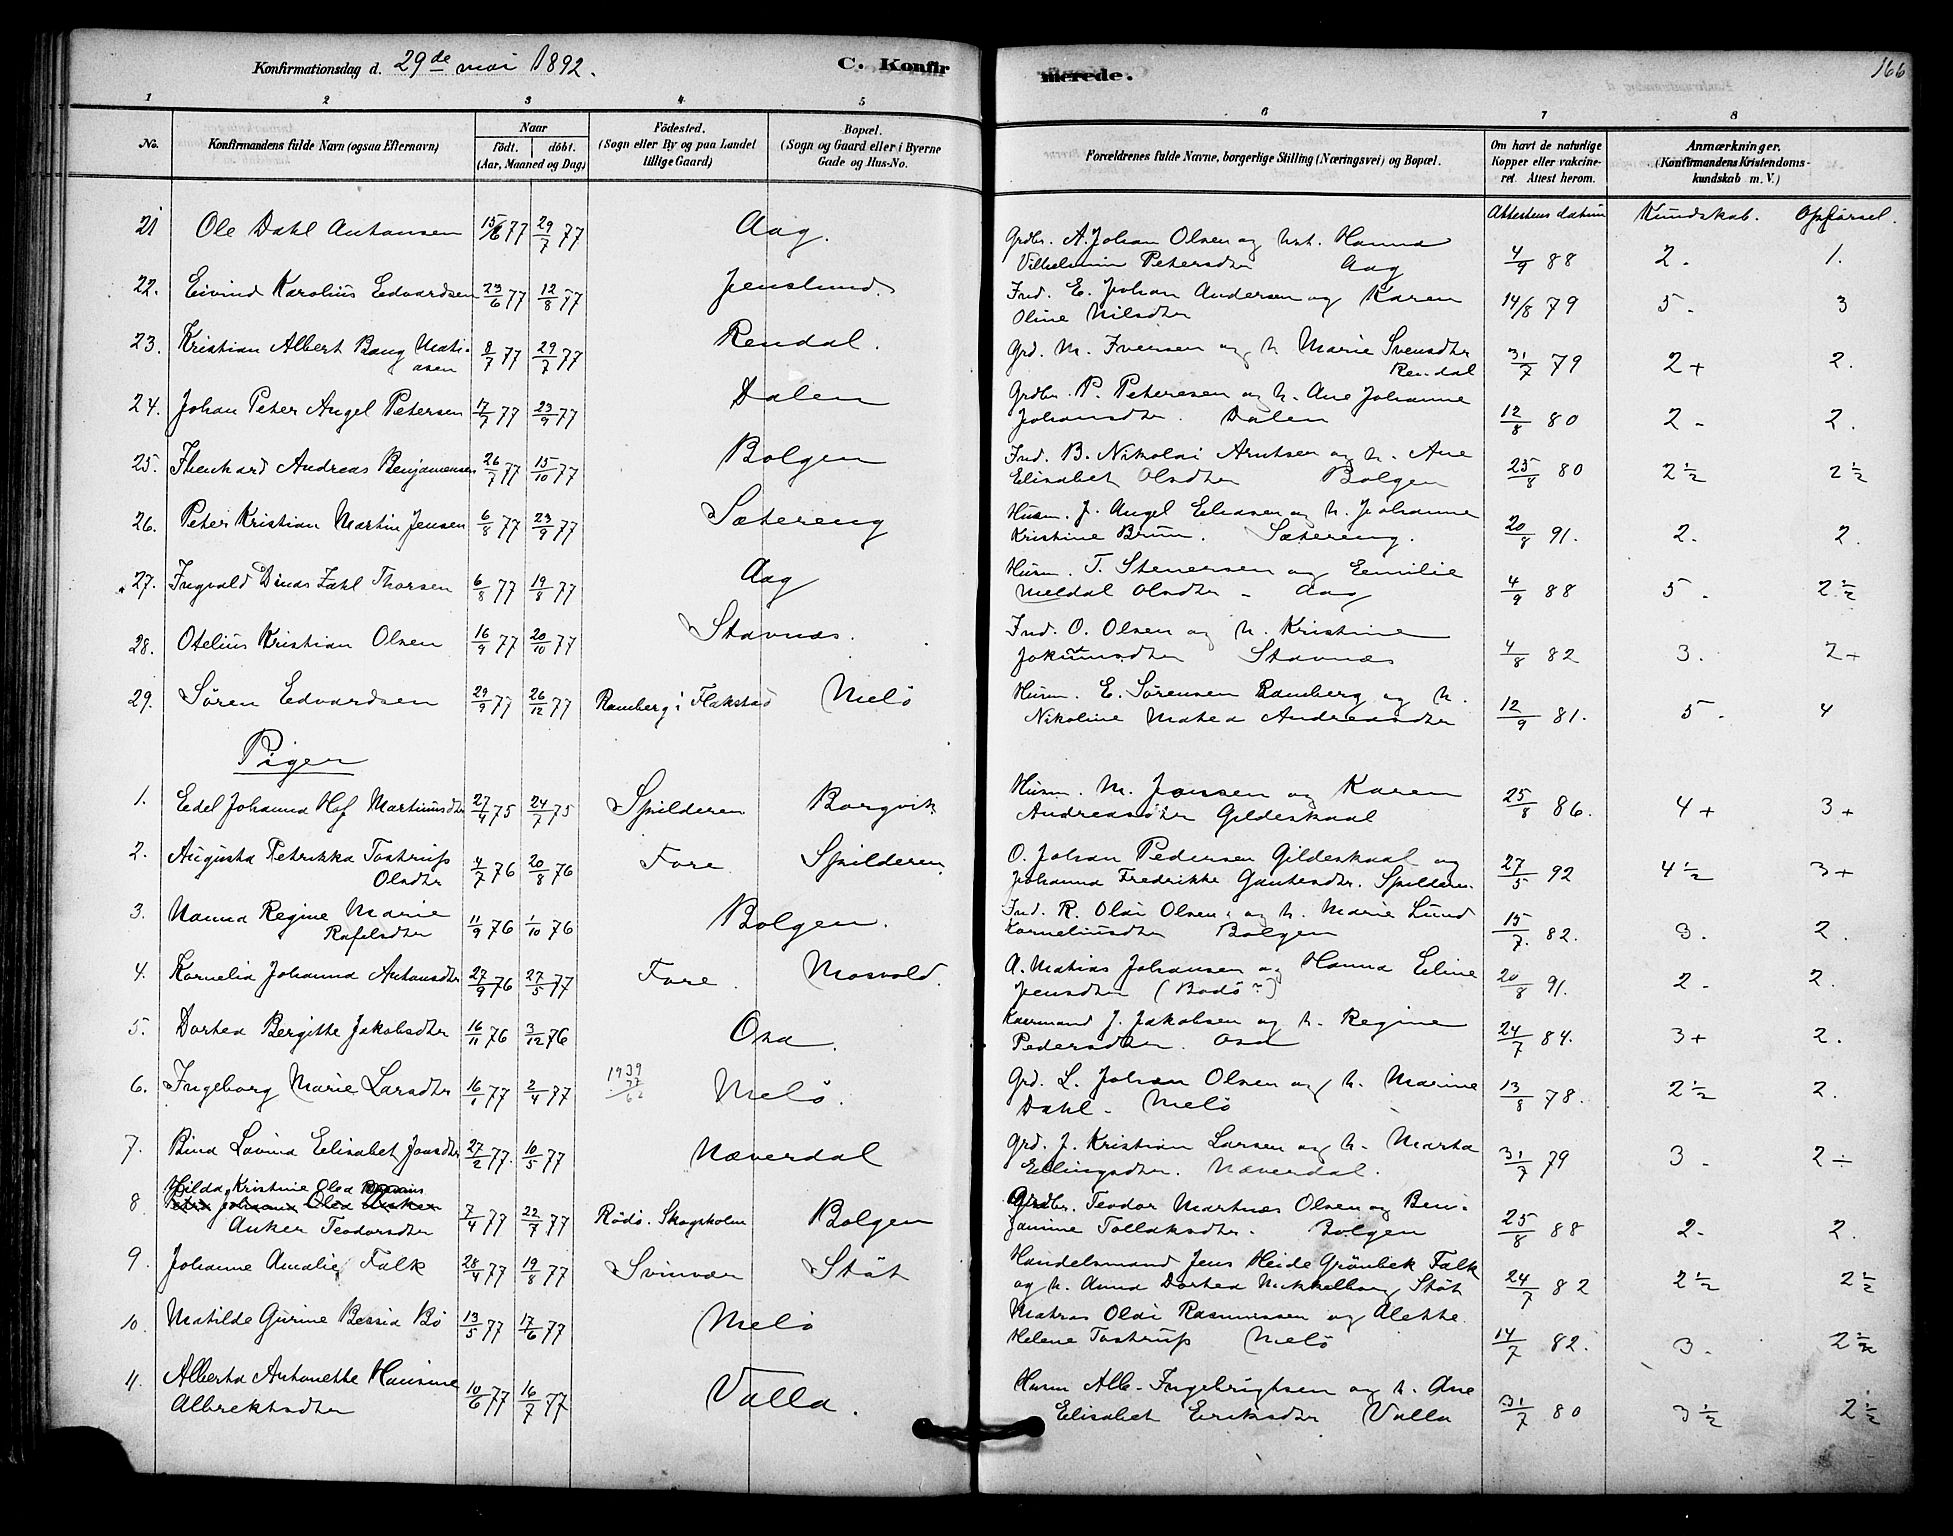 Konfirmationsdag d. 29de mai 1892.
C. Konfirmerede.
166
1 2 3 4 5 6 7 8
No.
Konfirmandens fulde Navn (ogsaa Efternavn)
Naar
Födt. döbt.
(Aar, Maaned og Dag)
Födested.
(Sogn eller By og paa Landet tillige Gaard)
Bopæl.
(Sogn og Gaard eller i Byerne Gade og Hus-No.
Forældrenes fulde Navne, borgerlige Stilling (Næringsvei) og Bopæl.
Om havt de naturlige Kopper eller vakcineret. Attest herom.
Anmærkninger.
(Konfirmandens Kristendomskundskab m. V.)
Attestens datum Kundskab. Opförsel.
21 Ole Dahl Antonsen 15/6 77 29/7 77 Aag. Grdbr. A. Johan Olsen og hst. Hanna
Vilhelmine Petersdtr Aag 4/9 88 2. 1.
22. Eivind Karolius Edvardsen 23/6 77 12/8 77 Jenslund. Ind. E. Johan Andersen og Karen
Oline Nilsdtr 14/8 79 5. 3
23. Kristian Albert Bang Mati-
asen 8/7 77 29/7 77 Rendal. Grd. M. Ivensen og h Marie Svensdtr
Rendal 31/7 79 2+ 2.
24. Johan Peter Angel Petersen 17/7 77 23/9 77 Dalen Grdbr. P. Petersen og h. Ane Johanne
Johansdtr. Dalen 12/8 80 2- 2.
25. Thenhard Andreas Benjaminsen 26/7 77 15/10 77 Bolgen Ind. B. Nikolai Arntsen og h. Ane
Elisabet Olsdtr Bolgen 25/8 80 2½ 2½
26. Peter Kristian Martin Jensen 6/8 77 23/9 77 Sætereng Husm. J. Angel Eliasen og h. Johanne
Kristine Brun. Sætereng. 20/8 91. 2. 2.
27. Ingvald Dinas Zahl Thorsen 6/8 77 19/8 77 Aag Husm. T. Stenersen og Emilie
Meldal Olsdtr - Aag 4/9 88 5. 2½
28. Otelius Kristian Olsen 16/9 77 20/10 77 Stavnæs. Ind. O. Olsen og h. Kristine
Jokumsdtr Stavnæs 4/8 82 3. 2+
29. Sören Edvardsen 29/9 77 26/12 77 Ramberg i Flakstad Melö Husm. E. Sörensen Ramberg og h.
Nikoline Matea Andreasdtr 12/9 81. 5. 4
Piger
1. Edel Johanna Hof Martinusdtr 27/4 75 24/7 75 Spilderen Borgvik Husm. M. Jensen og Karen
Andreasdtr Gildeskaal 25/8 86. 4+ 3+
2. Augusta Petrikka Tostrup
Olsdtr 4/7 76 20/8 76 Fore. Spilderen. O. Johan Pedersen Gildeskaal og
Johanna Fredrikke Gautesdtr. Spilderen. 27/5 92 4½ 3+
3. Nanna Regine Marie
Rafelsdtr 11/9 76 1/10 76 Bolgen. Ind. R. Olai Olsen og h. Marie Lund
Korneliusdtr Bolgen 15/7. 82. 3. 2.
4. Kornelia Johanna Antonsdtr 27/9 76 27/5 77 Fore. Mosvold. A. Matias Johansen og Hanna Eline
Jensdtr (Bodö?) 20/8 91. 2- 2.
5. Dortea Bergitte Jakobsdtr 16/11 76 3/12 76 Osa. Kaarmand J. Jakobsen og h. Regine
Pedersdtr. Osa 24/7 84. 3+ 2.
6. Ingeborg Marie Larsdtr 16/1 77 2/4 77 1939 77/62 Melö. Grd. L. Johan Olsen og h. Marine
Dahl. Melö 13/8 78. 2½ 2.
7. Bina Lovina Elisabet Jonsdtr 27/2 77. 10/5 77 Næverdal Grd. J. Kristian Larsen og h. Marta
Ellingsdtr. Næverdal. 31/7 79 3- 2÷
8. Hilda Kristine Olea
Petra Johanna Olea Anker
Anker Teodorsdtr 7/4 77 22/7 77 Rödö. Skogsholm Bolgen Grdbr. Teodor Martnæs Olsen og Ben-
jamine Tollaksdtr. Bolgen 25/8 88 2- 2.
9. Johanne Amalie Falk 28/4 77 19/8 77 Svinvær Stöt Handelsmand Jens Heide Grönbek Falk
og h. Anna Dortea Mikkelborg Stöt 24/7 82 2½ 2½
10. Matilde Gurine Bersia Bö 13/5 77 17/6 77 Melö Matias Olai Rasmussen og Alette
Helene Tostrup Melö 14/7 82. 3. 2½
11. Alberta Antonette Hansine
Albrektsdtr 10/6 77 16/7 77 Valla. Husm Alb. Ingebrigtsen og h. Ane
Elisabet Eriksdtr Valla 31/7 80 3½ 2½